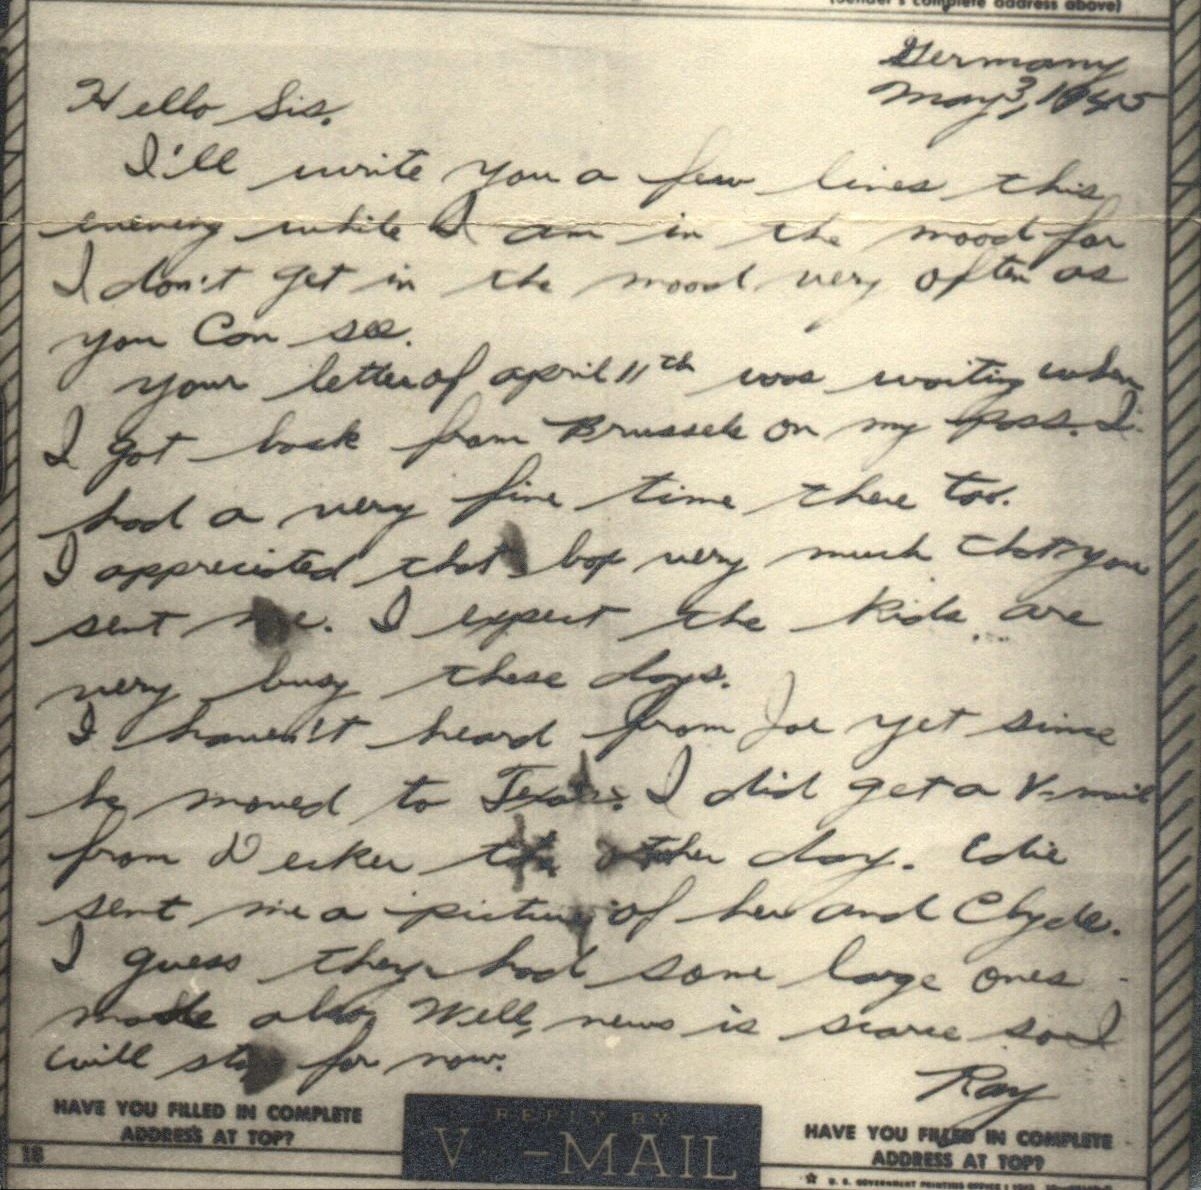 (Sender's complete address above)
Germany
May 3, 1945
Hello Sis.
I'll write you a few lines this
evening while I am in the mood for
I don't get in the mood very often as
you can see.
Your letter of april 11th was waiting when
I got back from Brussels on my pass. I
had a very fine time there too.
I appreciated that box very much that you
sent me. I expect the kids are
very busy these days.
I haven't heard from Joe yet since
he moved to Texas. I did get a V-mail
from Decker the other day. Edie
sent me a picture of her and Clyde.
I guess they had some large ones
made also. Well, news is scarce so I
will stop for now.
Ray
HAVE YOU FILLED IN COMPLETE
ADDRESS AT TOP?
REPLY BY
V··-MAIL
HAVE YOU FILLED IN COMPLETE
ADDRESS AT TOP?
18
☆ U. S. GOVERNMENT PRINTING OFFICE